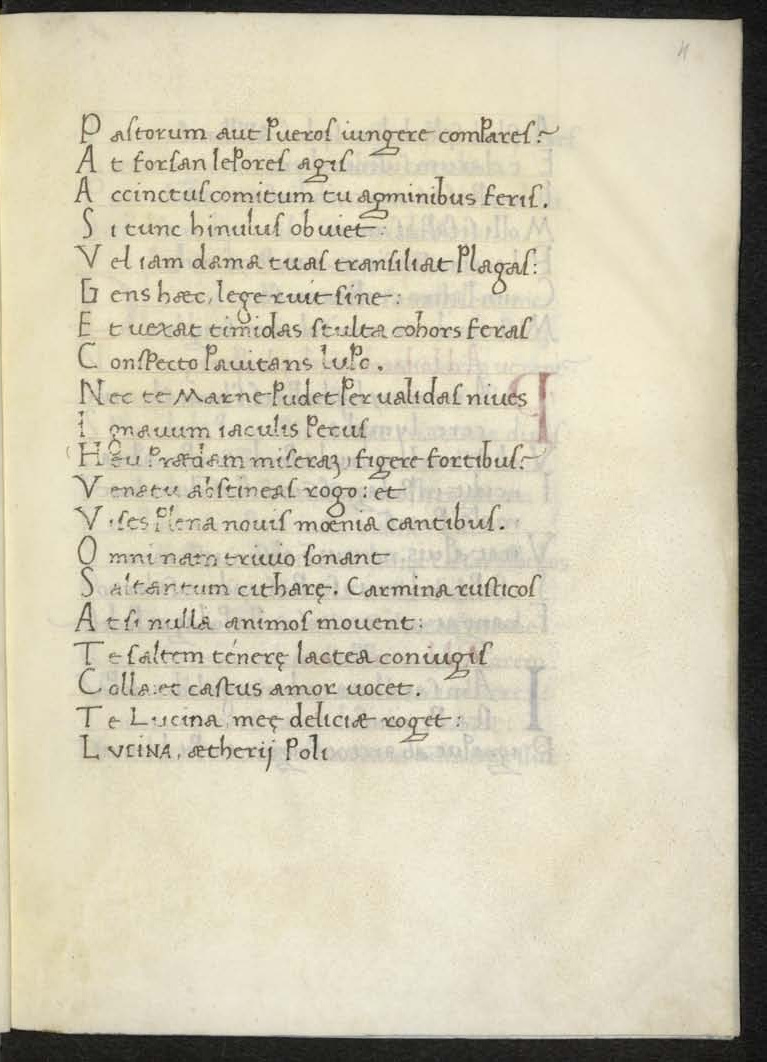 Pastorum aut pueros iungere compares?
At forsan lepores agis
Accinctus comitum tu agminibus feris.
Si tunc hinulus obuiet:
Vel iam dama tuas transiliat plagas:
Gens hæc, lege ruit sine:
Et uexat timidas stulta cohors feras
Conspecto pauitans lupo.
Nec te Marne pudet per ualidas niues
Ignauum iaculis pecus
Heu prædam miseraʒ, figere fortibus?
Venatu abstineas rogo: et
Vises plena nouis mœnia cantibus.
Omni nam triuio sonant
Saltantum citharę. Carmina rusticos
At si nulla animos mouent:
Te saltem ténerę lactea coniugis
Colla: et castus amor uocet.
Te Lucina, meę deliciæ roget:
LVCINA, ætherij poli